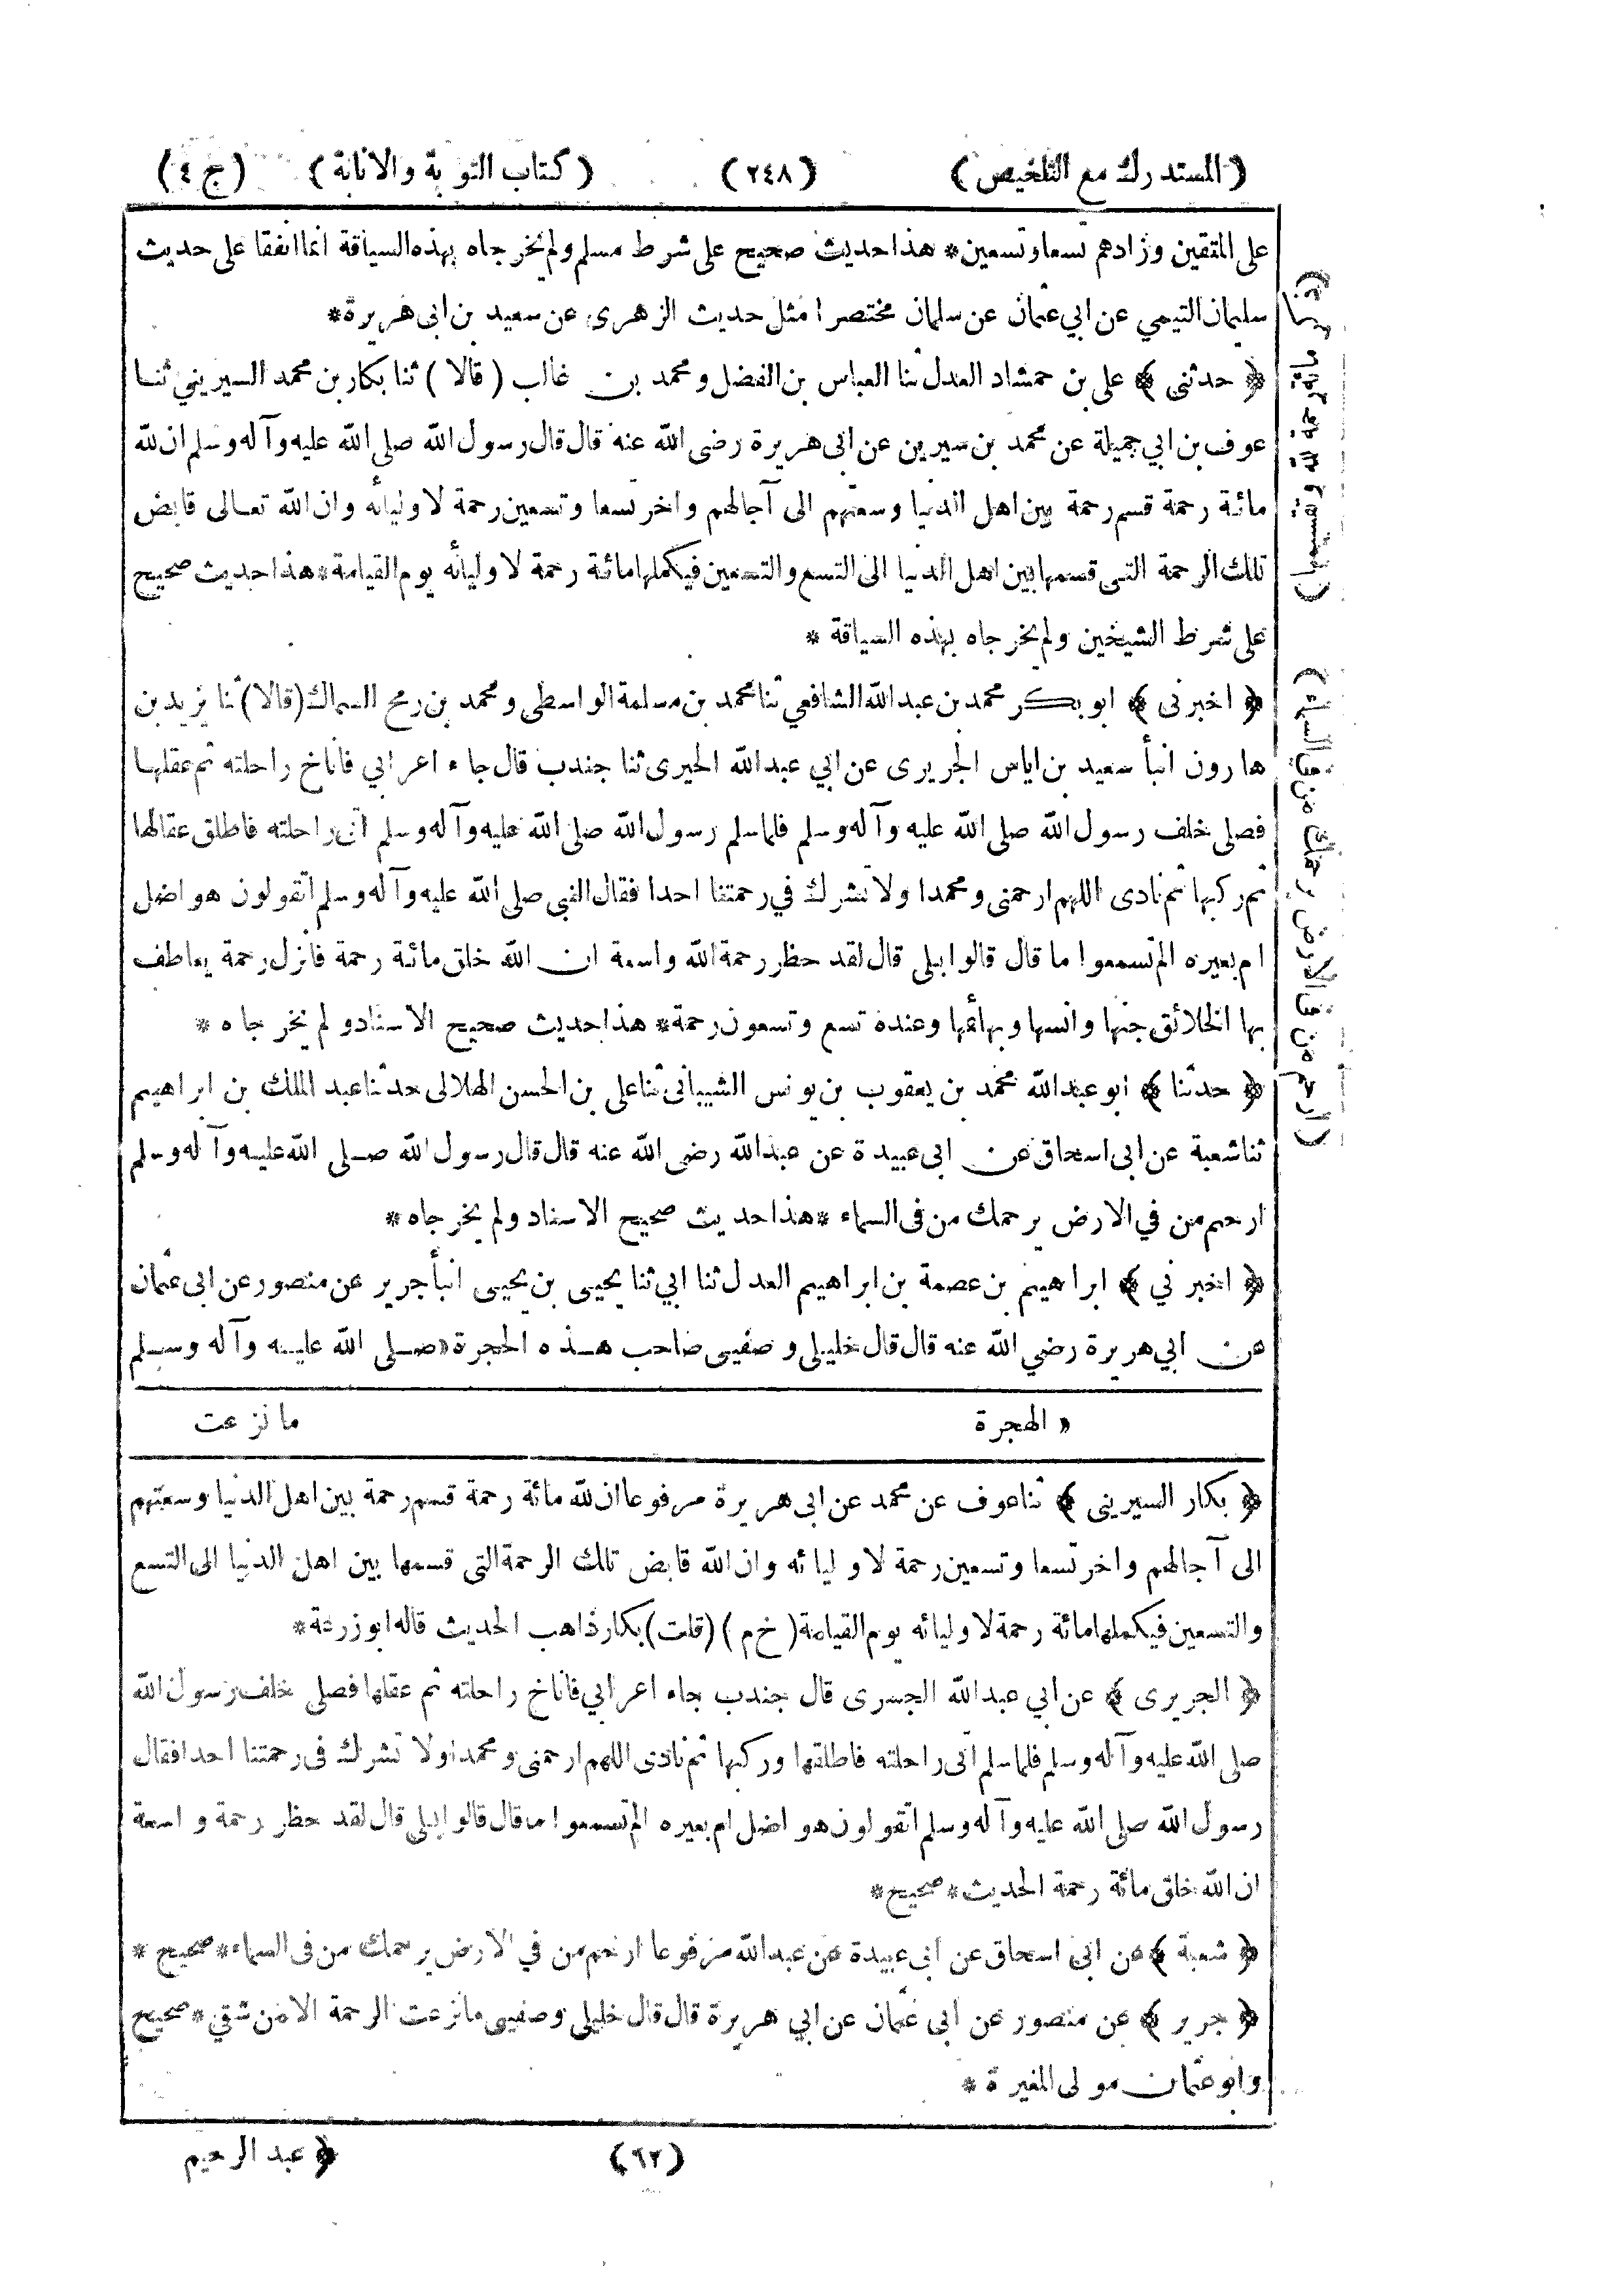 (المستدرك مع التلخيص) (٢٤٨) (كتاب التوبة والانابة) (ج ٤)
على المتقين وزادهم تسعا وتسعين * هذا حديث صحيح على شرط مسلم ولم يخرجاه بهذه السياقة انما اتفقا على حديث
سليمان التيمي عن ابي عثمان عن سلمان مختصرا مثل حديث الزهرى عن سعيد بن ابى هريرة *
﴿ حدثنى ﴾ على بن حمشاد العدل ثنا العباس بن الفضل ومحمد بن غالب (قالا) ثنا بكار بن محمد السيريني ثنا
عوف بن ابي جميلة عن محمد بن سيرين عن ابى هريرة رضى الله عنه قال قال رسول الله صلى الله عليه وآله وسلم ان لله
مائة رحمة قسم رحمة بين اهل الدنيا وسعتهم الى آجالهم واخر تسعا وتسعين رحمة لاوليائه وان الله تعالى قابض
تلك الرحمة التى قسمها بين اهل الدنيا الى التسع والتسعين فيكملها مائة رحمة لاوليائه يوم القيامة * هذا حديث صحيح
على شرط الشيخين ولم يخرجاه بهذه السياقة *
﴿ اخبرنى ﴾ ابو بكر محمد بن عبد الله الشافعي ثنا محمد بن مسلمة الواسطى ومحمد بن رمح السماك (قالا) ثنا يزيد بن
هارون انبأ سعيد بن اياس الجريرى عن ابي عبد الله الحيرى ثنا جندب قال جاء اعرابي فاناخ راحلته ثم عقلها
فصلى خلف رسول الله صلى الله عليه وآله وسلم فلما سلم رسول الله صلى الله عليه وآله وسلم اتى راحلته فاطلق عقالها
ثم ركبها ثم نادى اللهم ارحمنى ومحمدا ولا تشرك في رحمتنا احدا فقال النبى صلى الله عليه وآله وسلم اتقولون هو اضل
ام بعيره الم تسمعوا ما قال قالوا بلى قال لقد حظر رحمة الله واسعة ان الله خلق مائة رحمة فانزل رحمة يعاطف
بها الخلائق جنها وانسها وبهائمها وعنده تسع وتسعون رحمة * هذا حديث صحيح الاسناد ولم يخرجاه *
﴿ حدثنا ﴾ ابو عبد الله محمد بن يعقوب بن يونس الشيبانى ثنا على بن الحسن الهلالى حدثنا عبد الملك بن ابراهيم
ثنا شعبة عن ابى اسحاق عن ابى عبيدة عن عبد الله رضى الله عنه قال قال رسول الله صلى الله عليه وآله وسلم
ارحم من في الارض يرحمك من فى السماء * هذا حديث صحيح الاسناد ولم يخرجاه *
﴿ اخبرني ﴾ ابراهيم بن عصمة بن ابراهيم العدل ثنا ابي ثنا يحيى بن يحيى انبأ جرير عن منصور عن ابى عثمان
عن ابي هريرة رضي الله عنه قال قال خليلى وصفيى صاحب هذه الحجرة « صلى الله عليه وآله وسلم
« الهجرة ما نزعت
﴿ بكار السيرينى ﴾ ثنا عوف عن محمد عن ابى هريرة مرفوعا ان لله مائة رحمة قسم رحمة بين اهل الدنيا وسعتهم
الى آجالهم واخر تسعا وتسعين رحمة لاوليائه وان الله قابض تلك الرحمة التى قسمها بين اهل الدنيا الى التسع
والتسعين فيكملها مائة رحمة لاوليائه يوم القيامة (خ م) (قلت) بكار ذاهب الحديث قاله ابو زرعة *
﴿ الجريرى ﴾ عن ابي عبد الله الجسرى قال جندب جاء اعرابي فاناخ راحلته ثم عقلها فصلى خلف رسول الله
صلى الله عليه وآله وسلم فلما سلم اتى راحلته فاطلقها وركبها ثم نادى اللهم ارحمنى ومحمدا ولا تشرك فى رحمتنا احدا فقال
رسول الله صلى الله عليه وآله وسلم اتقولون هو اضل ام بعيره الم تسمعوا ما قال قالوا بلى قال لقد حظر رحمة واسعة
ان الله خلق مائة رحمة الحديث * صحيح *
﴿ شعبة ﴾ عن ابى اسحاق عن ابى عبيدة عن عبد الله مرفوعا ارحم من في الارض يرحمك من فى السماء * صحيح *
﴿ جرير ﴾ عن منصور عن ابى عثمان عن ابي هريرة قال قال خليلى وصفيى ما نزعت الرحمة الا من شقي * صحيح
وابو عثمان مولى المغيرة *
(٦٢) ﴿ عبد الرحيم
(ارحم من فى الارض يرحمك من فى السماء)